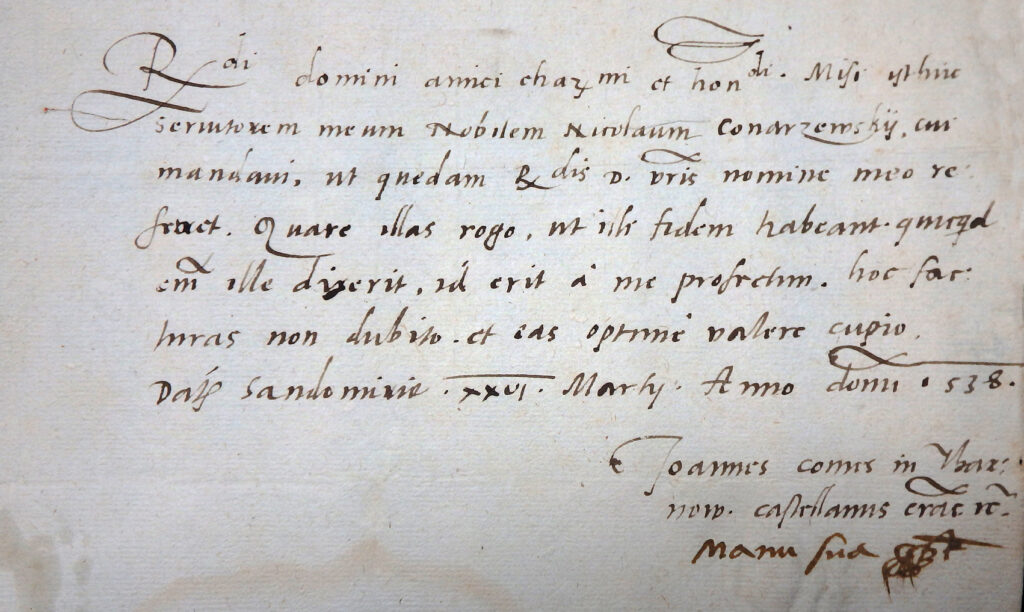 Rdi domini amici charmi et hondi. Misi isthuc
Servitorem meum Nobilem Nicolaum Conarzewskij, cui
mandavi, ut quedam Rdis d. vris nomine meo re-
ferret. Quare illas rogo, ut illi fidem habeant. quicqd
em ille dixerit, id erit à me profectum. hoc fac-
turas non dubito. et eas optime valere cupio.
Dat Sandomirie . XXVI . Martij . Anno domi . 538 .
Joannes comes in Thar-
now. castellanus crac rc.
Manu sua sspt